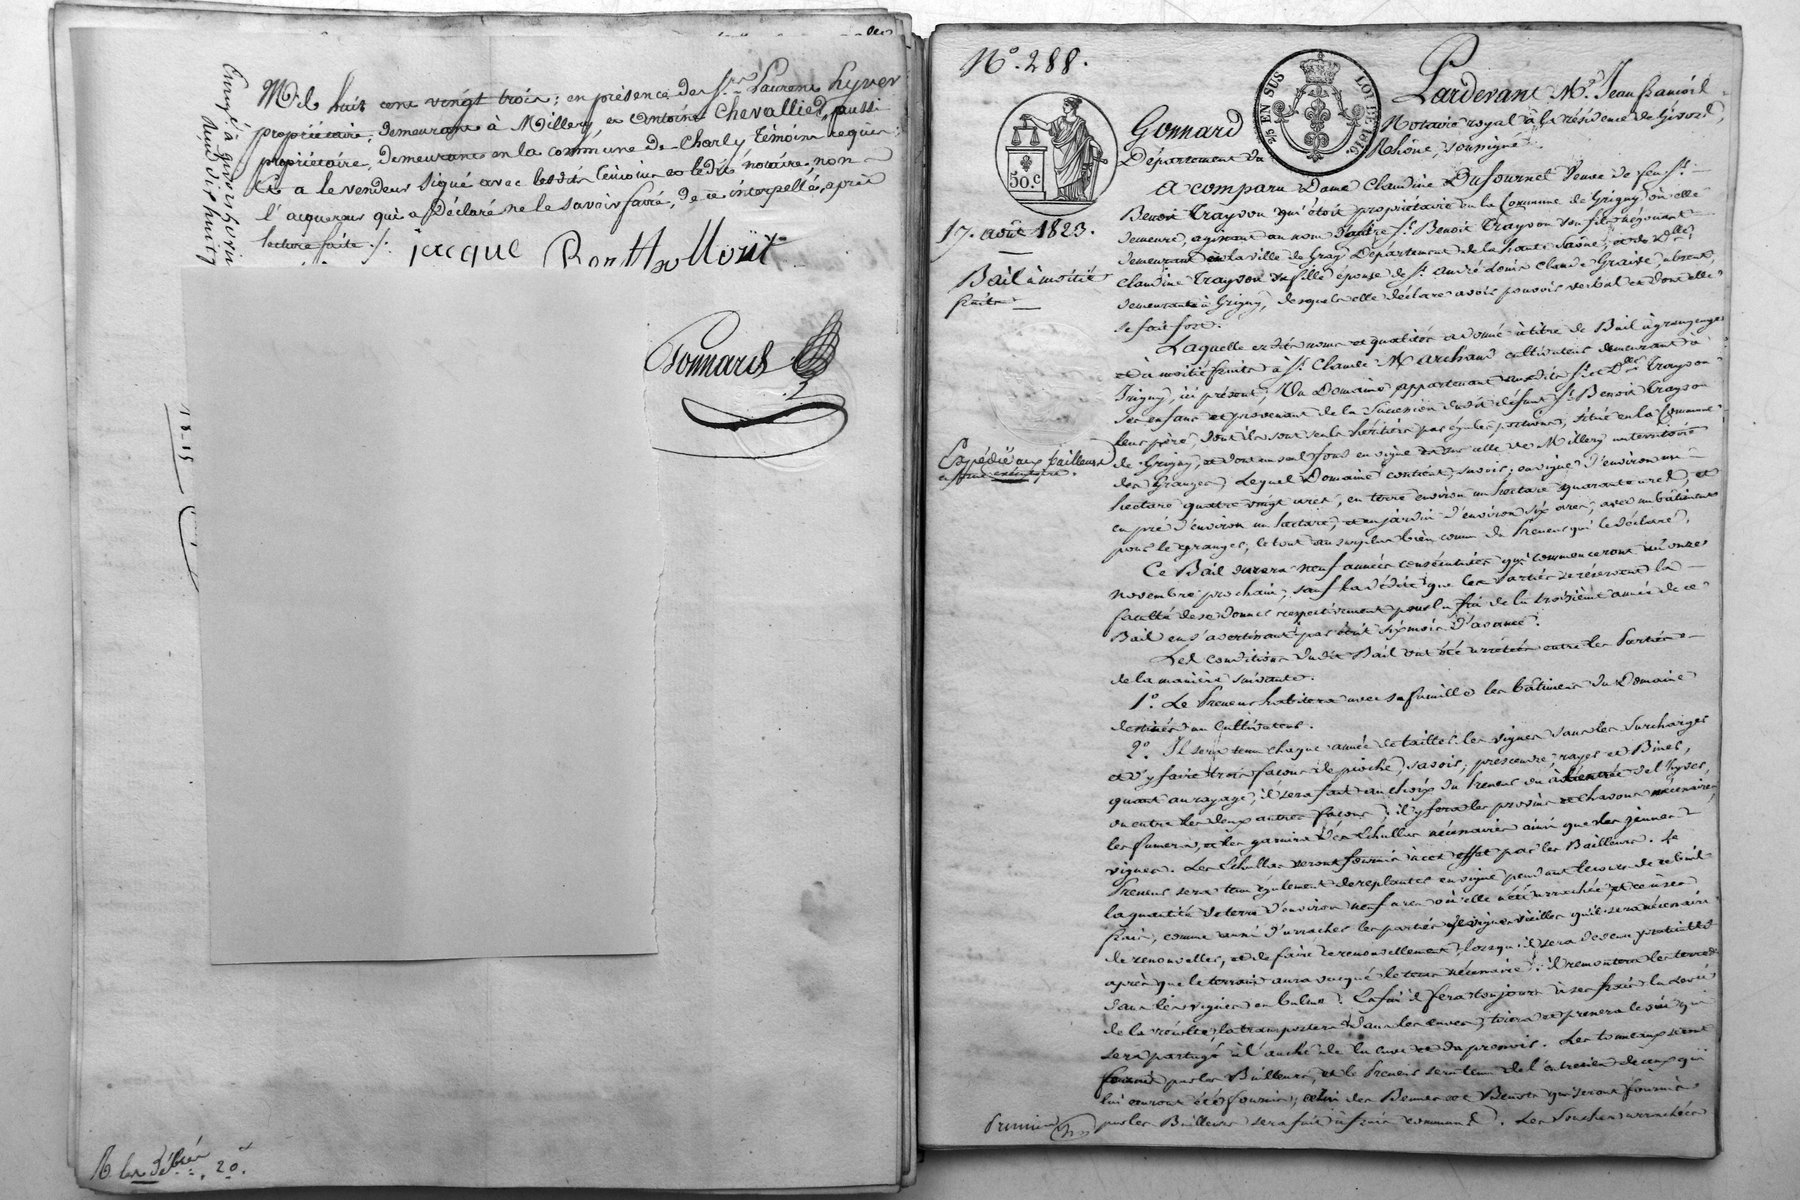 Mil huit cent vingt trois; en présence de Srs. Laurent hyver
propriétaire, demeurant à Millery, et antoine Chevallier, aussi
propriétaire, demeurant en la commune de Charly témoins requis;
Et a le vendeur signé avec lesdits témoins et ledit notaire, non
l'acquereur qui a Déclaré ne le savoir faire, de ce interpellé, après
lecture faite ./.
jacque
Gonnard
20
N°. 288.
Pardevant Me. Jean
Gonnard
25 EN SUS
LOI DE 1816
Notaire royal à la résidence de Givors,
Département du Rhône, soussigné.
50. C
A comparu Dame Claudine Dufournel Veuve de feu Sr.
Benoit Trayvon qui étoit propriétaire en la Commune de Grigny où elle
demeure, agissant au nom d'autre Sr. Benoit Trayvon son fils négociant
17. août 1823.
demeurant en la ville de Gray Département de la haute Saône, et de Dlle.
Bail à moitié
fruits
Claudine Trayvon sa fille épouse de Sr. André Louis Claude Graive absent,
demeurante à Grigny, desquels elle déclare avoir pouvoir verbal et dont elle
se fait fort.
Laquelle esdits noms et qualités a donné à titre de Bail à grangeage
et à moitié fruits à Sr. Claude Marchand cultivateur demeurant à
Irigny, ici présent, Un Domaine appartenant auxdits Sr. et Dlle. Trayvon
ses enfans et provenant de la Succession dudit défunt Sr. Benoit Trayvon
leur père, dont ils sont seuls héritiers par égales portions, situé en la Commune
Expédié aux Bailleurs
en forme exécutoire.
de Grigny, et dont un seul fond en vigne est sur celle de Millery au territoire
des Granges; Lequel Domaine contient, savoir; en vigne d'environ un
hectare quatre vingt ares, en terre environ un hectare quarante ares, et
en pré d'environ un hectare, et en jardin d'environ six ares, avec un bâtiment
pour le granger; le tout au surplus bien connu du Preneur qui le déclare.
Ce Bail durera neuf années consécutives qui commenceront au onze
novembre prochain, sauf la dédite que les Parties se réservent la
faculté de se donner respectivement pour la fin de la troisième année de ce
Bail en s'avertissant par écrit six mois d'avance.
Les conditions dudit Bail ont été arrêtées entre les Parties
de la manière suivante.
1°. Le Preneur habitera avec sa famille les bâtimens du Domaine
destinés au Cultivateur.
2°. Il sera tenu chaque année de tailler les vignes sans les surcharger
et d'y faire trois façons de pioche, savoir; rayer et Biner,
quant au rayage, il sera fait au choix du Preneur ou à l'entrée de l'hyver,
ou entre les deux autres façons; il y fera les provins nécessaires,
les fumera, et les garnira d'échallas nécessaires ainsi que les jeunes
vignes. Les échallas seront fournis à cet effet par les Bailleurs. Le
Preneur sera tenu également de replanter en vigne pendant le cours de ce bail
la quantité de terre d'environ neuf ares où elle a été arrachée, et ce à ses
frais, comme aussi d'arracher les parties de vignes vieilles qu'il sera nécessaire
de renouveller, et de faire ce renouvellement, lorsqu'il sera devenu praticable
après que le terrain aura vacqué le tems nécessaire; il remontera les terres
dans les vignes en Enfin il fera toujours à ses frais la levée
de la récolte, la transportera dans les cuves, tirera et pressera le vin qui
sera partagé à l'anche de la cuve et du pressoir. Les tonneaux seront
fournis par les Bailleurs, et le Preneur sera tenu de l'entretien de ceux qui
lui auront été fournis; celui des Bennes et qui seront fournis
par les Bailleurs sera fait à frais communs. Les souches arrachées